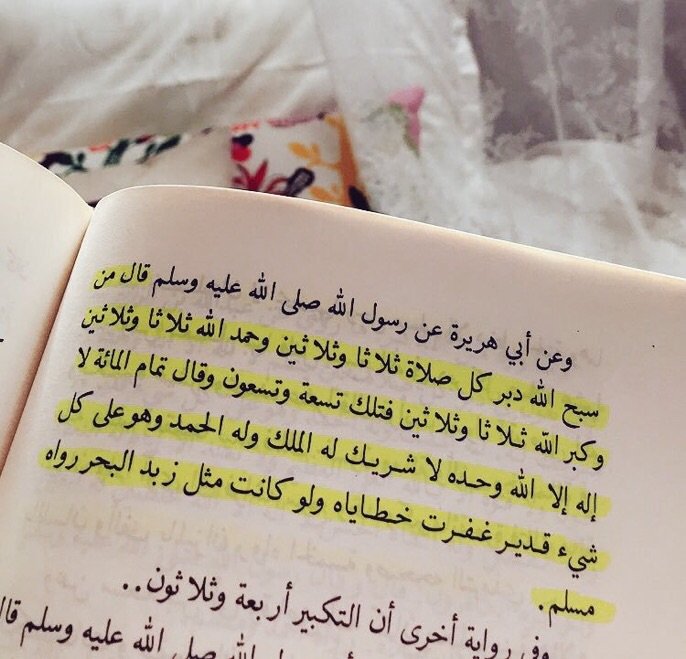 وعن أبي هريرة عن رسول الله صلى الله عليه وسلم قال من
سبح الله دبر كل صلاة ثلاثا وثلاثين وحمد الله ثلاثا وثلاثين
وكبر الله ثلاثا وثلاثين فتلك تسعة وتسعون وقال تمام المائة لا
إله إلا الله وحده لا شريك له الملك وله الحمد وهو على كل
شيء قدير غفرت خطاياه ولو كانت مثل زبد البحر رواه
مسلم.
وفي رواية أخرى أن التكبير أربعة وثلاثون..
الله صلى الله عليه وسلم قال